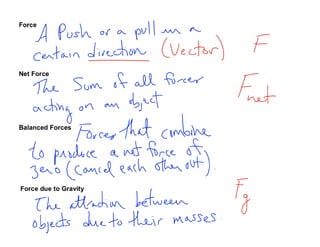 Force
A Push or a pull in a
certain direction (Vector) F
Net Force
The Sum of all forces
acting on an object Fnet
Balanced Forces
Forces that combine
to produce a net force of
zero (cancel each other out).
Force due to Gravity
The attraction between Fg
objects due to their masses.